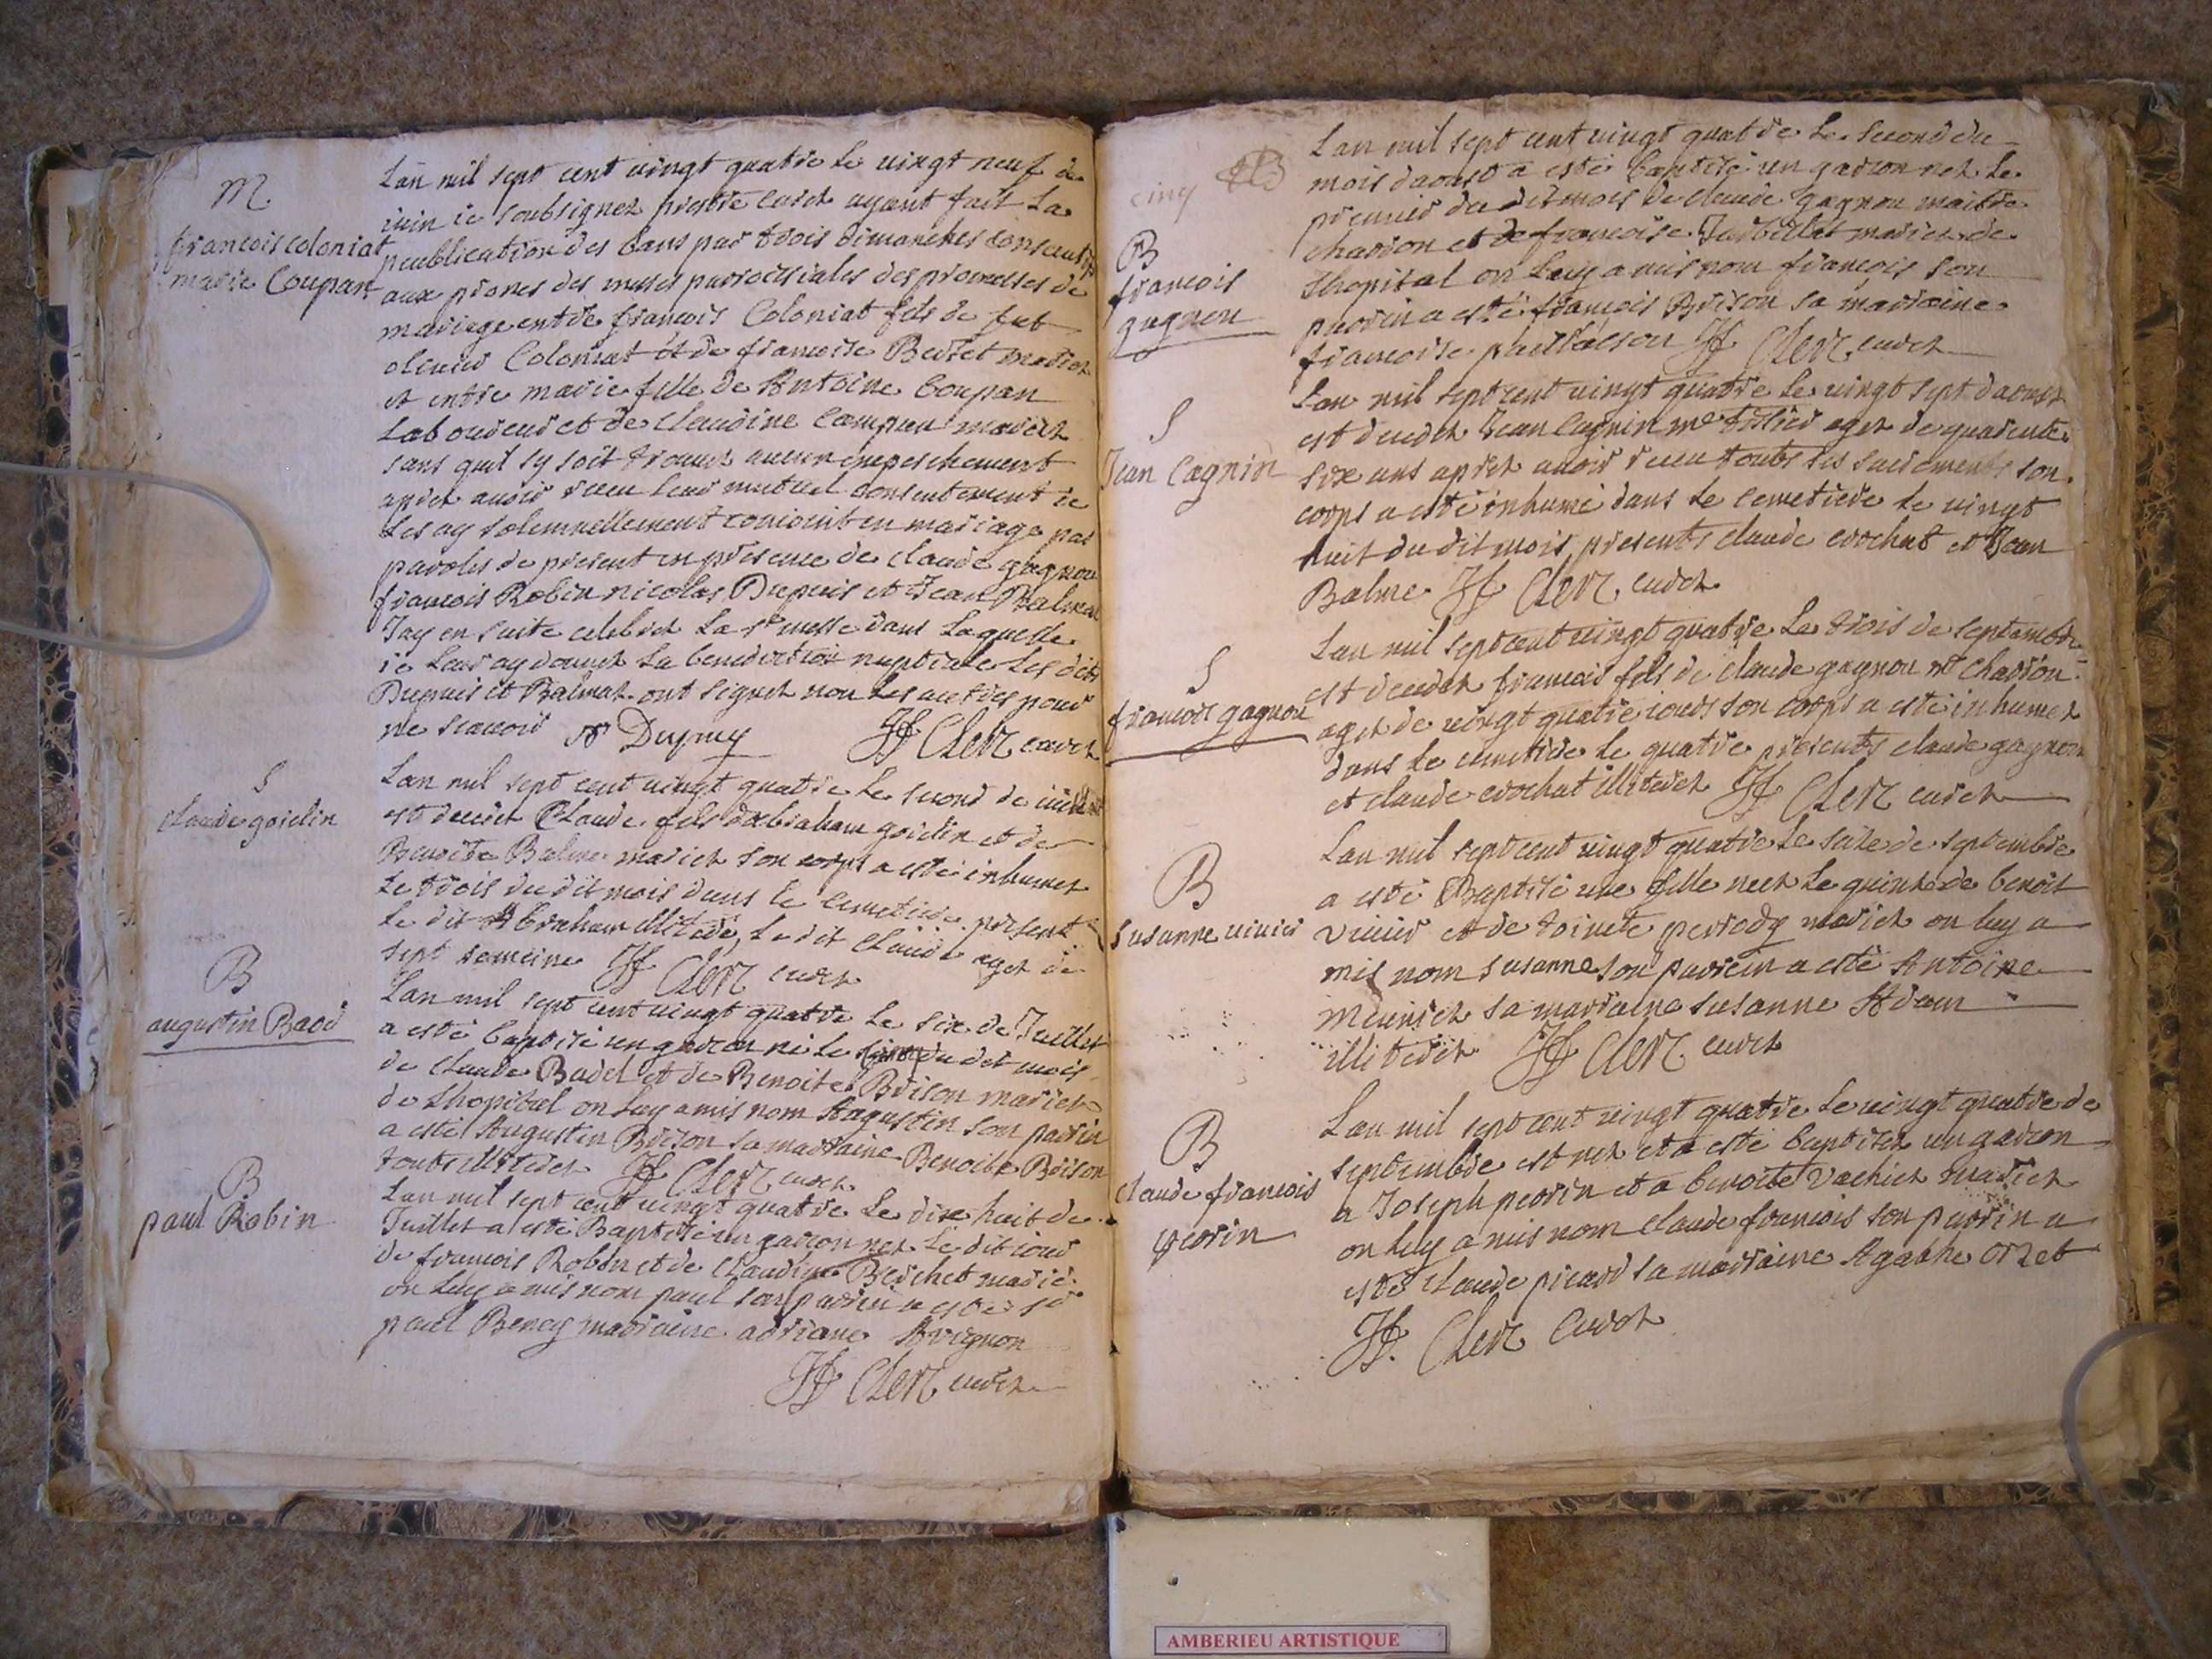 M
francois coloniat
marie Coupan
Lan mil sept cent vingt quatre le vingt neuf de
iuin ie soubsignez prestre curez ayant fait la
publication des bans par trois dimanches consecutifs
aux prones des messes parroissiales des promesses de
mariage entre francois Coloniat fils de fut
olivier Coloniat et de francoise mariez
et entre marie fille de Antoine Coupan
Laboureur et de Claudine mariez
sans quil sy soit trouvez aucun empeschement
aprez avoir receu leur mutuel consentement ie
les ay solemnellement conioint en mariage par
paroles de present en presence de claude gagnon
francois Robin nicolas Dupuis et Jean Balmat
Jay en suite celebrez la ste messe dans laquelle
ie leur ay donnez la benediction nuptiale les dits
Dupuis et Balmat ont signez non les autres pour
ne scavoir Dupuy Clerc curez
S
claude goiclin
Lan mil sept cent vingt quatre le second de iuillet
est decedez Claude fils dabraham goiclin et de
Benoite Balme mariez son corps a esté inhumez
le trois du dit mois dans le cemetiere present
le dit Abraham illiteré, le dit Claude agez de
sept semaine Clerc curez
B
augustin
Lan mil sept cent vingt quatre le six de Juillet
a esté baptisé un garcon né le cinq du dit mois
de claude Badel et de Benoite Brison mariez
de Lhopital on luy a mis nom Augustin son parrin
a esté Augustin Brison sa marraine Benoite Brison
touts illiterez Clerc curez
B
paul Robin
Lan mil sept cent vingt quatre le dix huit de
Juillet a esté Baptisé un garcon nez le dit iour
de francois Robin et de Claudine Berchet marié
on luy a mis nom paul son parrin a esté sr
paul Bency marraine adriane Avignon
Clerc curez
cinq
B
francois
gagnon
Lan mil sept cent vingt quatre le second du
mois daoust a esté baptisé un garcon nez le
premier du dit mois de claude gagnon maitre
charron et de francoise mariez de
Lhopital on luy a mis nom francois son
parrin a esté francois Brison sa marraine
francoise Clerc curez
S
Jean Cagnin
Lan mil sept cent vingt quatre le vingt sept daoust
est decedez Jean Cagnin me agez de quarente
six ans aprez avoir receu touts ses sacrements son
corps a esté inhumé dans le cemetiere le vingt
huit du dit mois, presents claude crochat et Jean
Balme Clerc curez
S
francois gagnon
Lan mil sept cent vingt quatre le trois de septembre
est decedez francois fils de claude gagnon me charron
agez de vingt quatre iours son corps a esté inhumez
dans le cemetiere le quatre presents claude gagnon
et claude crochat illiterez Clerc curez
B
susanne vivier
Lan mil sept cent vingt quatre le seize de septembre
a esté Baptisé une fille neez le quinze de benoit
vivier et de toinete mariez on luy a
mis nom susanne son parrein a esté Antoine
Meunier sa marraine susanne Adam
illiterez Clerc curez
B
claude francois
perrin
Lan mil sept cent vingt quatre le vingt quatre de
septembre est nez et a esté baptisez un garcon
a Joseph perrin et a benoite Vachier mariez
on luy a mis nom claude francois son parrin a
esté claude picard sa marraine Agathe Orset
Clerc Curez
AMBERIEU ARTISTIQUE